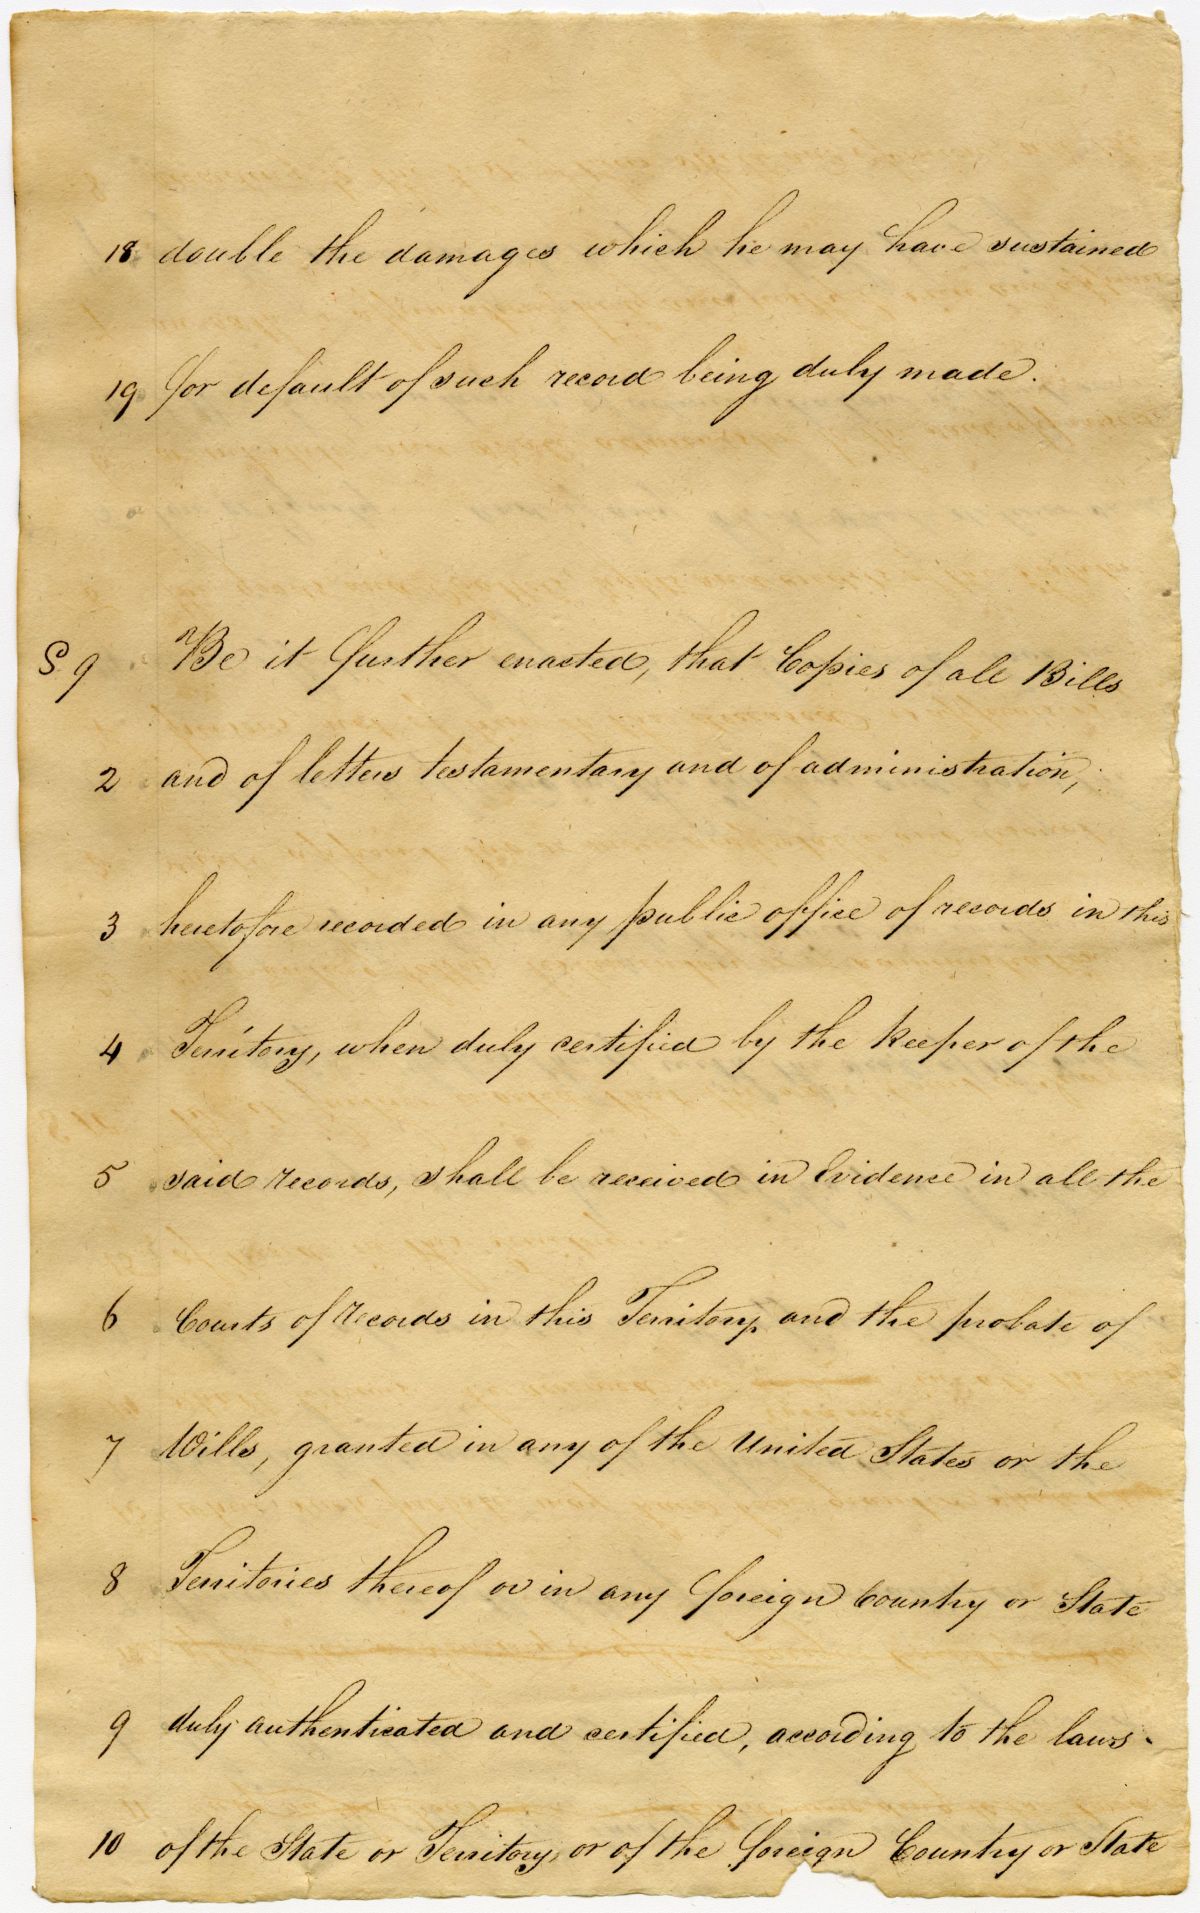 18 double the damages which he may have sustained
19 for default of such record being duly made.
S. 9 Be it further enacted, that Copies of all Bills
2 and of letters testamentary and of administration,
3 heretofore recorded in any public office of records in this
4 Territory, when duly certified by the Keeper of the
5 said records, shall be received in Evidence in all the
6 Courts of records in this Territory, and the probate of
7 Wills, granted in any of the United States or the
8 Territories thereof or in any foreign Country or State
9 duly authenticated and certified, according to the laws
10 of the State or Territory, or of the foreign Country or State